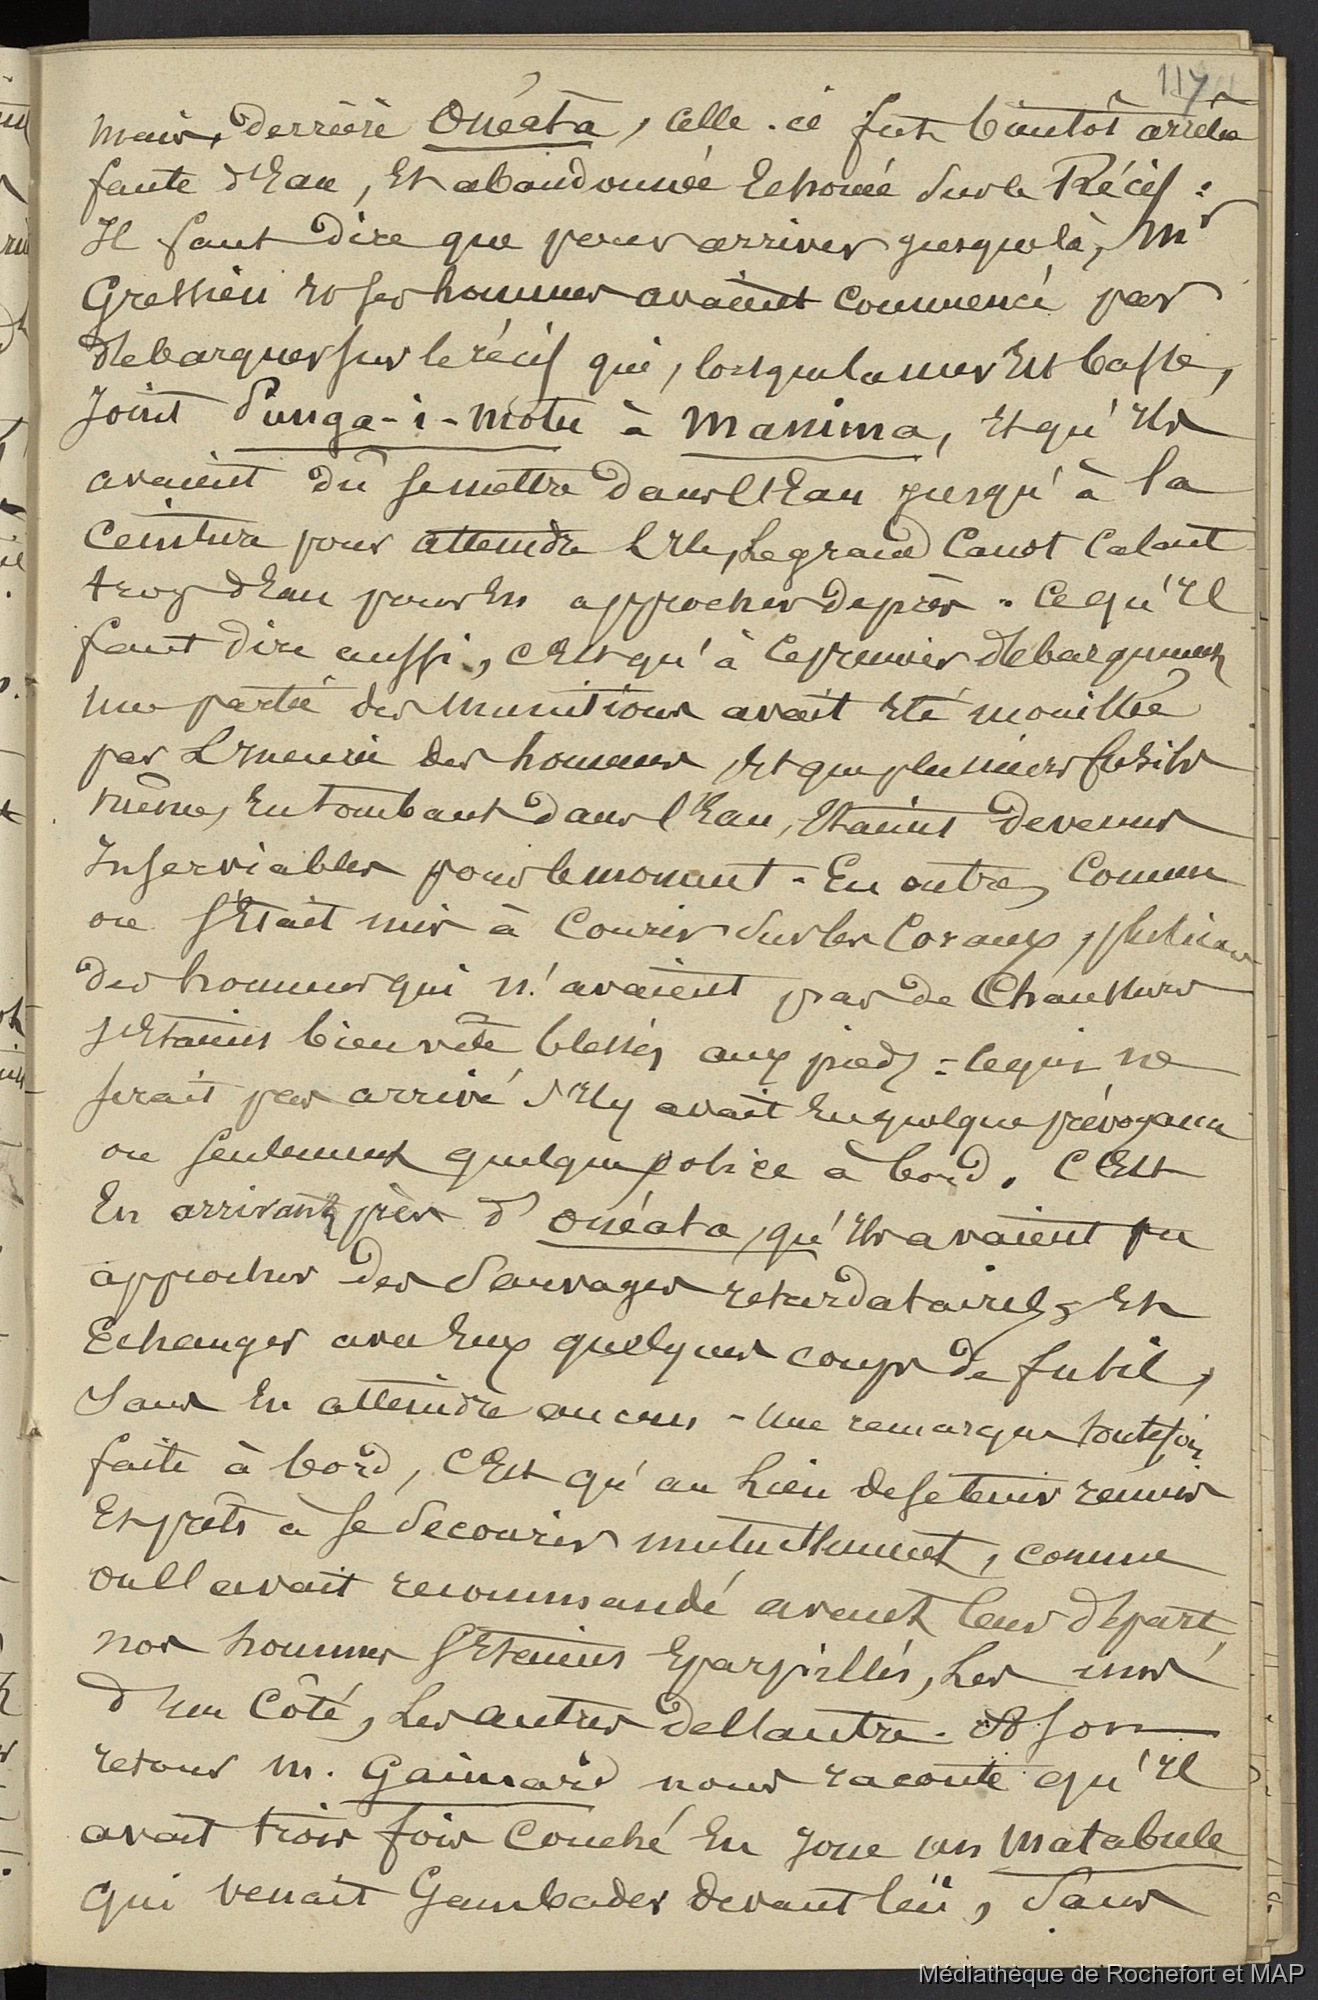 117
mais, derrière Onéata, celle-ci fut bientôt arrêtée
faute d'Eau, Et abandonnée Echouée sur le Récif :
Il faut dire que pour arriver jusque là, Mr
Gressien et ses hommes avaient commencé par
débarquer sur le récif qui, lorsque la mer Est basse,
Joint Punga-i-motu à Manima, Et qu'Ils
avaient dû se mettre dans l'Eau jusqu'à la
Ceinture pour atteindre L'Ile, Le grand Canot Calant
trop d'Eau pour En approcher de près. Ce qu'Il
faut dire aussi, c'Est qu'à ce premier débarquement
une partie des munitions avait Eté mouillée
par L'Incurie des hommes, Et que plusieurs fusils
même, En tombant dans l'Eau, Etaient devenus
Inserviables pour le moment - En outre, Comme
on s'Etait mis à Courir sur les Coraux, plusieurs
des hommes qui n'avaient pas de Chaussures
s'Etaient bien vite blessés aux pieds = ce qui ne
serait pas arrivé s'Il y avait Eu quelque prévoyance
ou seulement quelque police à bord. C'Est
En arrivant près d'Onéata, qu'Ils avaient pu
approcher des Sauvages retardataires, Et
Echanger avec Eux quelques coups de fusil,
Sans En atteindre aucuns - Une remarque toutefois
faite à bord, C'Est qu'au Lieu de se tenir réunis
Et prêts à se secourir mutuellement, comme
on ll avait recommandé avant leur départ,
nos hommes s'Etaient Eparpillés, Les uns
d'un Côté, Les autres de l'autre. A son
retour M. Gaimard nous raconte qu'Il
avait trois fois Couché En Joue un Matabule
qui venait Gambader devant lui, Sans
Médiathèque de Rochefort et MAP